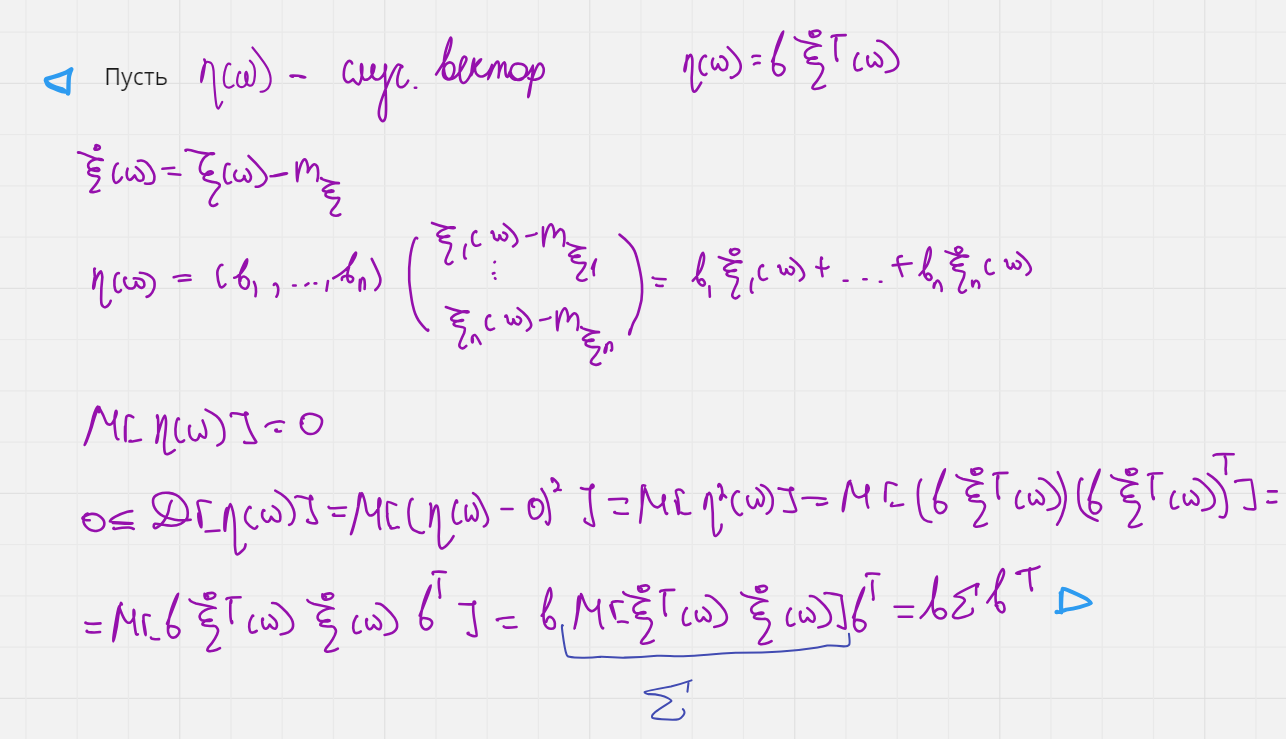 ◁ Пусть η(ω) – случ. вектор η(ω) = b ξ̊ᵀ(ω)
ξ̊(ω) = ξ(ω) – m_ξ
η(ω) = (b₁, ..., bₙ) (ξ₁(ω) – m_ξ₁ ⋮ ξₙ(ω) – m_ξₙ) = b₁ ξ̊₁(ω) + ... + bₙ ξ̊ₙ(ω)
M[η(ω)] = 0
0 ≤ D[η(ω)] = M[(η(ω) – 0)²] = M[η²(ω)] = M[(b ξ̊ᵀ(ω))(b ξ̊ᵀ(ω))ᵀ] =
= M[b ξ̊ᵀ(ω) ξ̊(ω) bᵀ] = b M[ξ̊ᵀ(ω) ξ̊(ω)] bᵀ = b Σ bᵀ ▷
Σ